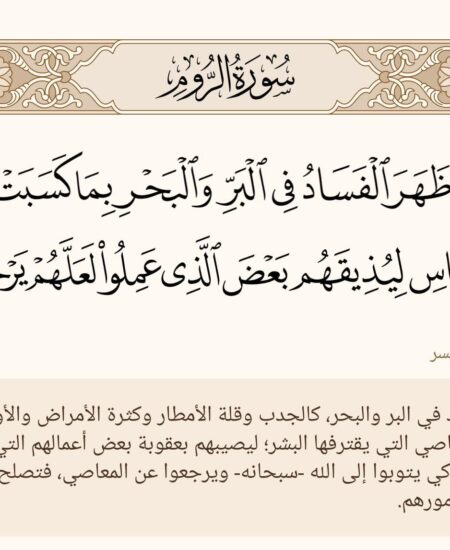 سُورَةُ الرُّومِ
ظَهَرَ ٱلْفَسَادُ فِى ٱلْبَرِّ وَٱلْبَحْرِ بِمَا كَسَبَتْ
لِيُذِيقَهُم بَعْضَ ٱلَّذِى عَمِلُوا۟ لَعَلَّهُمْ
في البر والبحر، كالجدب وقلة الأمطار وكثرة الأمراض
التي يقترفها البشر؛ ليصيبهم بعقوبة بعض أعمالهم
يتوبوا إلى الله -سبحانه- ويرجعوا عن المعاصي، فتصلح